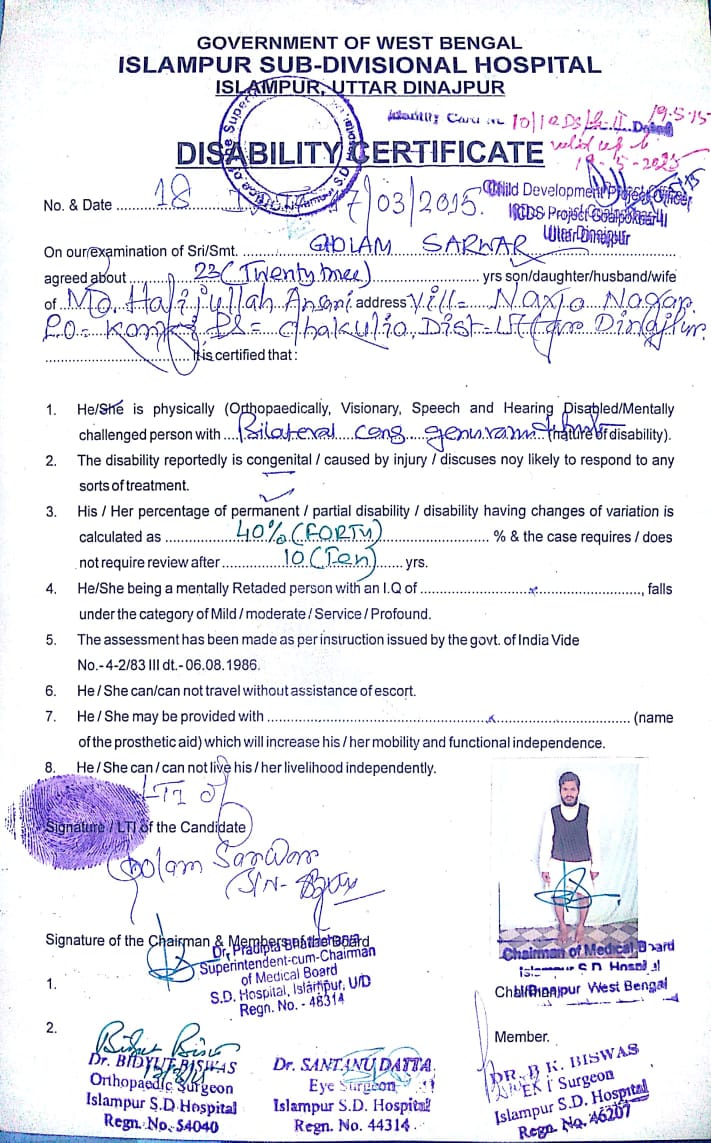 GOVERNMENT OF WEST BENGAL
ISLAMPUR SUB-DIVISIONAL HOSPITAL
ISLAMPUR, UTTAR DINAJPUR
Identity Card 19-5-15
DISABILITY CERTIFICATE
valid up to
19-5-2025
Child Development Project Officer
ICDS Project Goalpokher-II
Uttar Dinajpur
No. & Date 18 17/03/2015.
On our/examination of Sri/Smt. GOLAM SARWAR
agreed about 23 (Twenty three) yrs son/daughter/husband/wife
of Md. Hafijullah Ansari address Vill= Naxjo Nagar.
P.O= PS= Chakulia, Dist- Uttar Dinajpur.
It is certified that :
1. He/She is physically (Orthopaedically, Visionary, Speech and Hearing Disabled/Mentally
challenged person with Bilateral cong. genu (nature of disability).
2. The disability reportedly is congenital / caused by injury / discuses noy likely to respond to any
sorts of treatment.
3. His / Her percentage of permanent / partial disability / disability having changes of variation is
calculated as 40% (FORTY) % & the case requires / does
not require review after 10 (Ten) yrs.
4. He/She being a mentally Retaded person with an I.Q of x, falls
under the category of Mild / moderate / Service / Profound.
5. The assessment has been made as per instruction issued by the govt. of India Vide
No.- 4-2/83 III dt.- 06.08.1986.
6. He / She can/can not travel without assistance of escort.
7. He / She may be provided with x (name
of the prosthetic aid) which will increase his / her mobility and functional independence.
8. He / She can / can not live his / her livelihood independently.
LTI of
Signature / LTI of the Candidate
Golam Sarwar
Signature of the Chairman & Members of the Board
Dr. Pradipta Bhattacharya
Superintendent-cum-Chairman
of Medical Board
S.D. Hospital, Islampur, U/D
Regn. No. - 48314
Chairman of Medical Board
Islampur S.D. Hospital
Chairman
U/Dinajpur West Bengal
1.
2.
Member.
Dr. BIDYUT BISWAS
Orthopaedic Surgeon
Islampur S.D. Hospital
Regn. No. 54040
Dr. SANTANU DATTA
Eye Surgeon
Islampur S.D. Hospital
Regn. No. 44314
DR. B. K. BISWAS
ENT Surgeon
Islampur S.D. Hospital
Regn. No. 46207